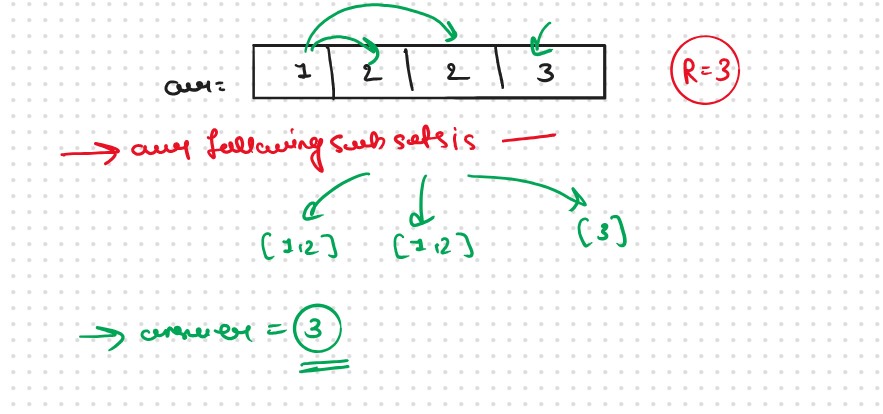 arr= 1 2 2 3 R=3
→ our following subsets is —
[1,2] [1,2] [3]
→ answer = 3